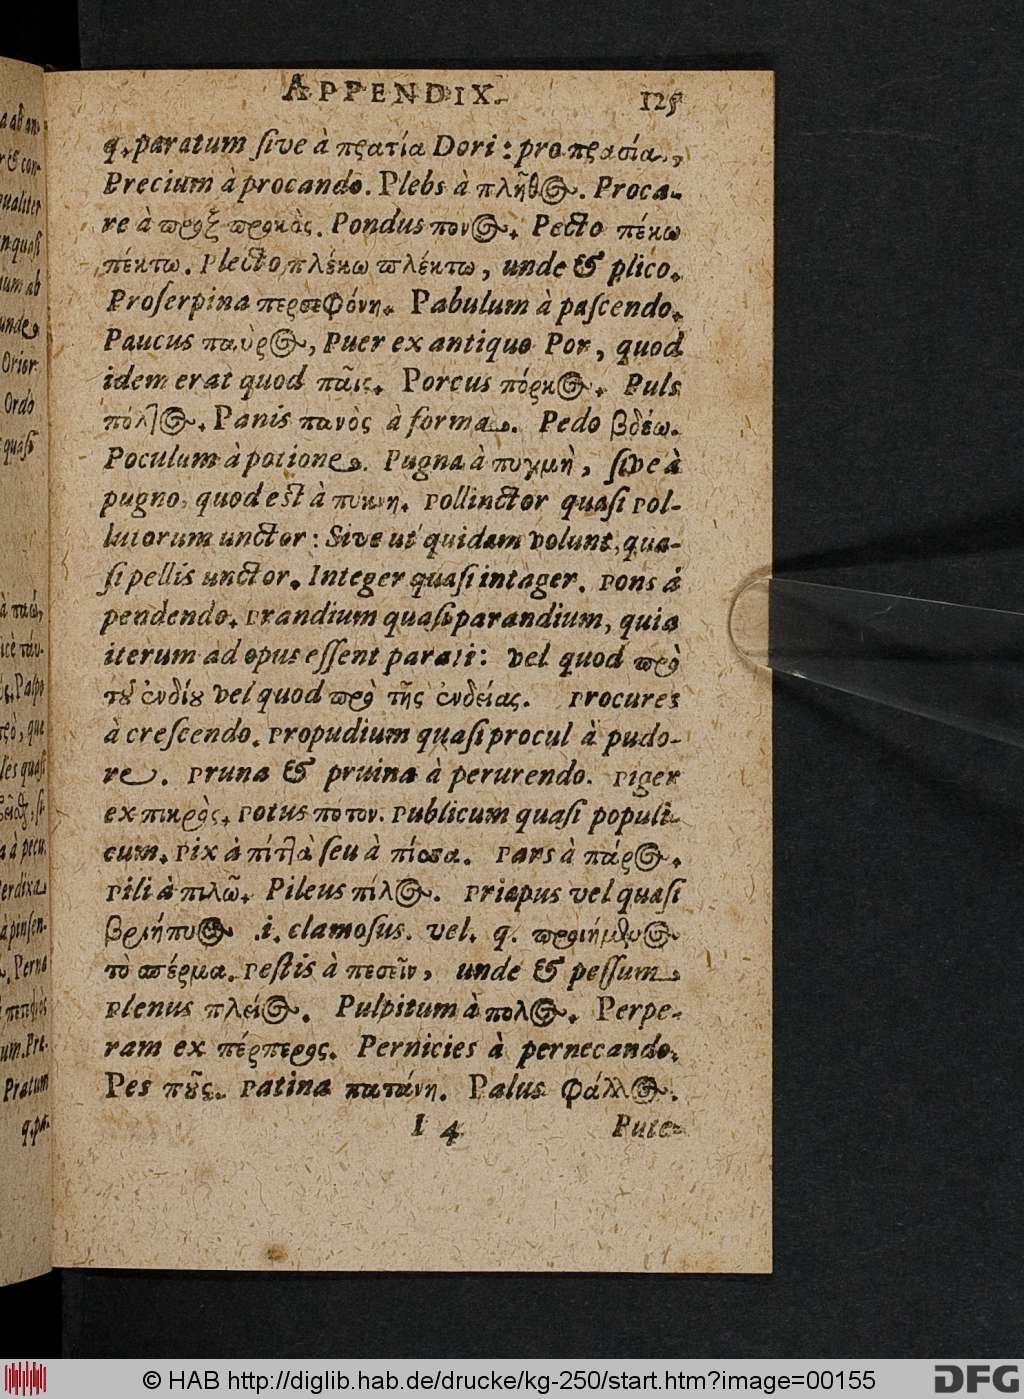 APPENDIX. 125
q. paratum ſive à πρατία Dori: pro πρασία,
Precium à procando. Plebs à πλῆθος. Proca-
re à προξ προκὸς. Pondus πονος. Pecto πέκω
πέκτω. Plecto πλέκω πλέκτω, unde & plico.
Proſerpina περσεφόνη. Pabulum à paſcendo.
Paucus παῦρος, Puer ex antiquo Por, quod
idem erat quod παῖς. Porcus πόρκος. Puls
πόλτος. Panis πανὸς à forma. Pedo βδέω.
Poculum à potione. Pugna à πυγμὴ, ſive à
pugno, quod eſt à πυκνη. Pollinctor quaſi Pol-
lutorum unctor: Sive ut quidam volunt, qua-
ſi pellis unctor. Integer quaſi intager. Pons á
pendendo. Prandium quaſi parandium, quia
iterum ad opus eſſent parati: vel quod πρὸ
τοῦ ἐνδίου vel quod πρὸ τῆς ἐνδείας. Procures
à creſcendo. Propudium quaſi procul à pudo-
re. Pruna & pruina à perurendo. Piger
ex πικρὸς. Potus ποτον. Publicum quaſi populi-
cum. Pix à πίττα ſeu à πίσσα. Pars à πάρος.
Pili à πιλῶ. Pileus πίλος. Priapus vel quaſi
βριήπυος .i. clamoſus. vel. q. προιήμενος
τὸ σπέρμα. Peſtis à πεσεῖν, unde & peſſum
Plenus πλεῖος. Pulpitum à πολος. Perpe-
ram ex πέρπερος. Pernicies à pernecando.
Pes ποῦς. Patina πατάνη. Palus φάλλος.
I 4 Pute-
© HAB http://diglib.hab.de/drucke/kg-250/start.htm?image=00155
DFG